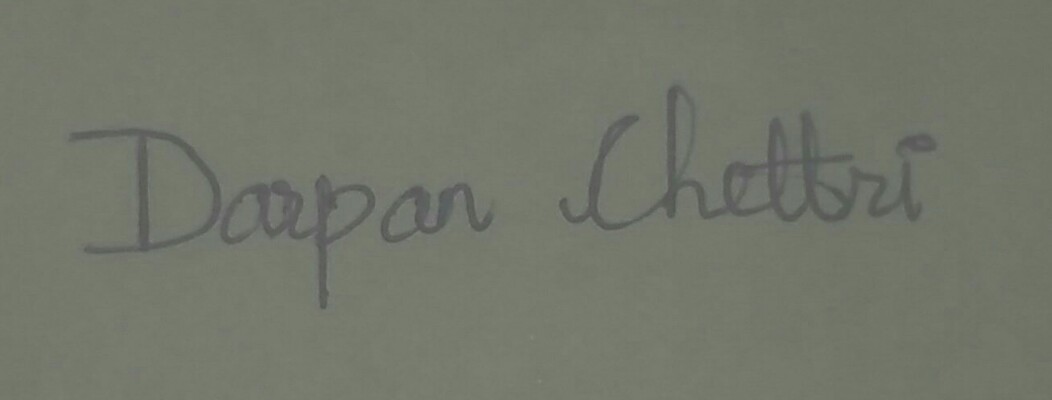 Darpan Chettri